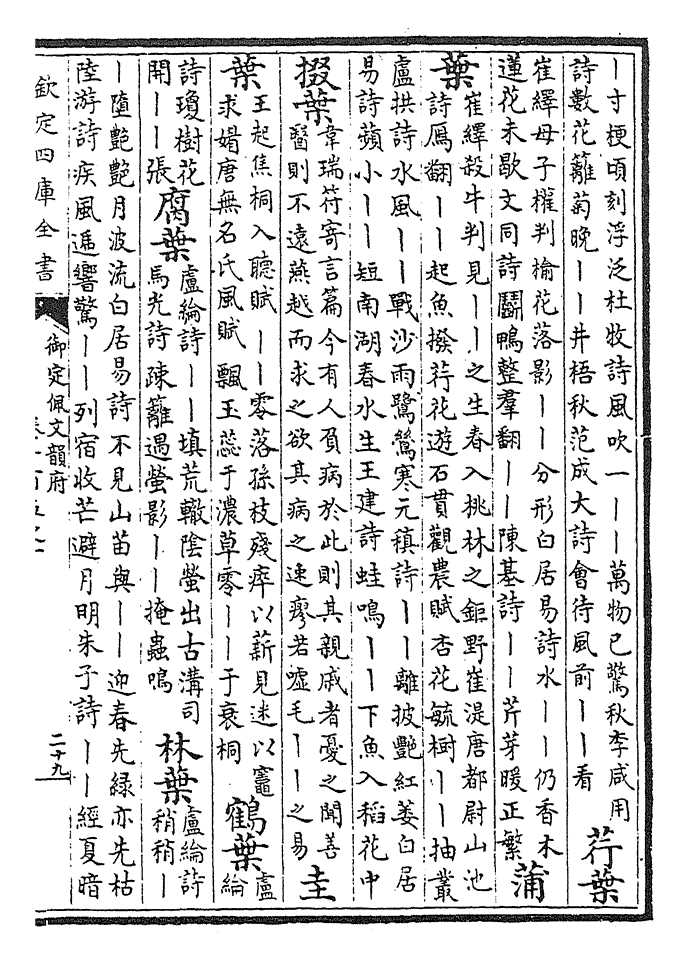 丨寸梗頃刻浮泛杜牧詩風吹一丨丨萬物已驚秋李咸用
詩數花籬菊晚丨丨井梧秋范成大詩會待風前丨丨看
荇葉
崔繹母子權判榆花落影丨丨分形白居易詩水丨丨仍香木
蓮花未歇文同詩鬬鴨整羣翻丨丨陳基詩丨丨芹芽暖正繁
蒲
葉
崔繹殺牛判見丨丨之生春入桃林之鉅野崔湜唐都尉山池
詩鴈翻丨丨起魚撥荇花遊石貫觀農賦杏花毓樹丨丨抽叢
盧拱詩水風丨丨戰沙雨鷺鶿寒元稹詩丨丨離披艷紅萎白居
易詩蘋小丨丨短南湖春水生王建詩蛙鳴丨丨下魚入稻花中
掇葉
韋瑞符寄言篇今有人負病於此則其親戚者憂之聞善
醫則不遠燕越而求之欲其病之速瘳若噓毛丨丨之易
圭
葉
王起焦桐入聽賦丨丨零落孫枝殘瘁以薪見迷以竈
求媚唐無名氏風賦飄玉蕊于濃草零丨丨于衰桐
鶴葉
盧
綸
詩瓊樹花
開丨丨張
腐葉
盧綸詩丨丨填荒轍陰螢出古溝司
馬光詩疎籬過螢影丨丨掩蟲鳴
林葉
盧綸詩
稍稍丨
丨墮艷艷月波流白居易詩不見山苗與丨丨迎春先緑亦先枯
陸游詩疾風遞響驚丨丨列宿收芒避月明朱子詩丨丨經夏暗
欽定四庫全書
御定佩文韻府
二十九